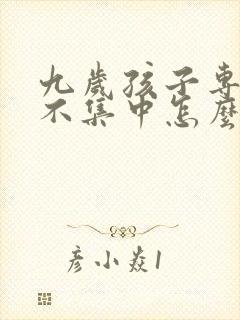 九歲孩子專
不集中怎麼
彥小焱1